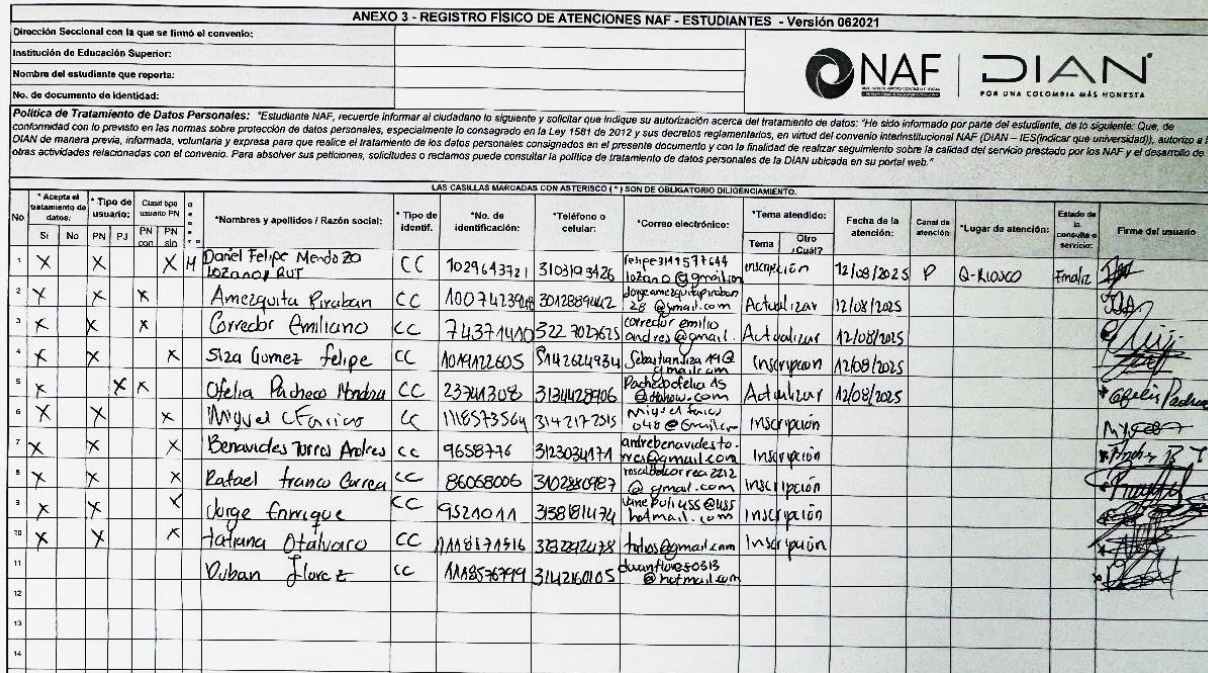 ANEXO 3 - REGISTRO FÍSICO DE ATENCIONES NAF - ESTUDIANTES - Versión 062021
Dirección Seccional con la que se firmó el convenio:
Institución de Educación Superior:
Nombre del estudiante que reporta:
No. de documento de identidad:
NAF | DIAN
POR UNA COLOMBIA MÁS HONESTA
Política de Tratamiento de Datos Personales: "Estudiante NAF, recuerde informar al ciudadano lo siguiente y solicitar que indique su autorización acerca del tratamiento de datos: "He sido informado por parte del estudiante, de lo siguiente: Que, de
conformidad con lo previsto en las normas sobre protección de datos personales, especialmente lo consagrado en la Ley 1581 de 2012 y sus decretos reglamentarios, en virtud del convenio interinstitucional NAF (DIAN – IES(indicar que universidad)), autorizo a l
DIAN de manera previa, informada, voluntaria y expresa para que realice el tratamiento de los datos personales consignados en el presente documento y con la finalidad de realizar seguimiento sobre la calidad del servicio prestado por los NAF y el desarrollo de
otras actividades relacionadas con el convenio. Para absolver sus peticiones, solicitudes o reclamos puede consultar la política de tratamiento de datos personales de la DIAN ubicada en su portal web."
LAS CASILLAS MARCADAS CON ASTERISCO (*) SON DE OBLIGATORIO DILIGENCIAMIENTO.
No
* Acepta el tratamiento de datos:
Si No
* Tipo de usuario:
PN PJ
Clasif tipo usuario PN
PN con PN sin
*Nombres y apellidos / Razón social:
* Tipo de identif.
*No. de identificación:
*Teléfono o celular:
*Correo electrónico:
*Tema atendido:
Tema Otro ¿Cuál?
Fecha de la atención:
Canal de atención
*Lugar de atención:
Estado de la consulta o servicio:
Firma del usuario
1 X X X M Daniel Felipe Mendoza Lozano/ RUT CC 1029643721 3103193426 felipe3147577644 lozano@gmail.com inscripción 12/08/2025 P Q-KIOSCO Finaliz
2 X X X Amezquita Piraban CC 3012889442 Jorgeamezquitapiraban 28 @gmail.com Actualizar 12/08/2025
3 X X X Corredor Emiliano CC 74371410 322 7027625 corredor emilio andres@gmail. Actualizar 12/08/2025
4 X X X Siza Gomez felipe CC 1019122605 3142624934 gmail.com Inscripcion 12/08/2025
5 X X X Ofelia Pacheco CC 23741308 3134428906 Pachecofelia 15 Actualizar 12/08/2025 Ofelia Pacheco
6 X X X Miguel CC 1118573564 3142172515 048@Gmail.com Inscripción
7 X X X Benavides Torres Andres CC 9658776 3123034171 andrebenavidesto. rres@gmail.com Inscripción
8 X X X Rafael franco Correa CC 86068006 3102880987 rosalbolcorrea2212 @gmail.com Inscripción
9 X X X Jorge Enrrique CC 9521011 3138181474 hotmail.com Inscripción
10 X X X tatiana Otalvaro CC 1118571516 Inscripción
11 Duban florez CC 1118576799 3142160105 duanflores0313 @hotmail.com
12
13
14